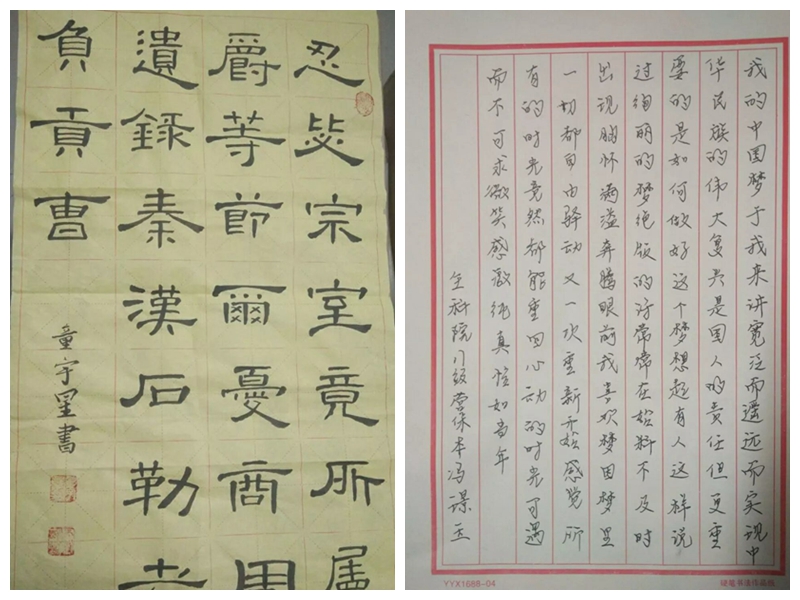 忍毖宗室竟所
爵等節爾憂商周
遺録秦漢石勒
負貢曹
童宇星書
我的中国梦于我来讲宽泛而遥远而实现中
华民族的伟大复兴是国人的责任但更重
要的是如何做好这个梦想起有人这样说
过绚丽的梦绝版的诗常常在始料不及时
出现胸怀满溢奔腾眼前我喜欢梦因梦里
一切都自由舞动又一次重新开始感觉所
有的时光竟然都能重回心动的时光可遇
而不可求微笑感激纯真恰如当年
YYX1688-04